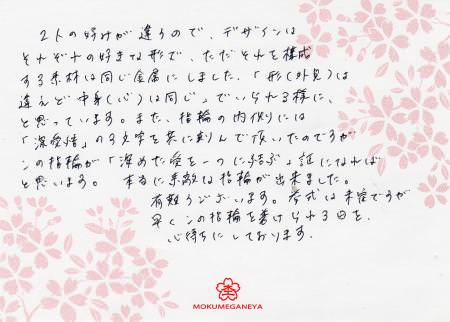 2人の好みが違うので、デザインは
それぞれの好きな形で、ただそれを構成
する素材は同じ金属にしました。「形(外見)は
違えど中身(心)は同じ」でいられる様に、
と思っています。また、指輪の内側には
「深愛結」の3文字を共に刻んで頂いたのですが
この指輪が「深めた愛を一つに結ぶ」証になれば
と思います。 本当に素敵な指輪が出来ました。
有難うございます。挙式は未定ですが
早くこの指輪を着けられる日を、
心待ちにしております。
MOKUMEGANEYA